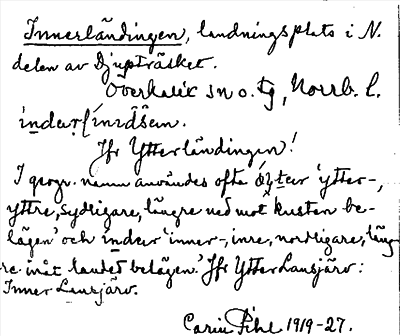 Innerländingen, landningsplats i N.
delen av Djupträsket.
Överkalix sn o. tg, Norrb. l.
Jfr Ytterländingen!
I geogr. namn användes ofta 'ytter-,
yttre, sydligare, längre ned mot kusten be-
lägen' och 'inner-, inre, nordligare, läng-
re inåt landet belägen.' Jfr Ytter Lansjärv:
Inner Lansjärv.
Carin Pihl 1919-27.